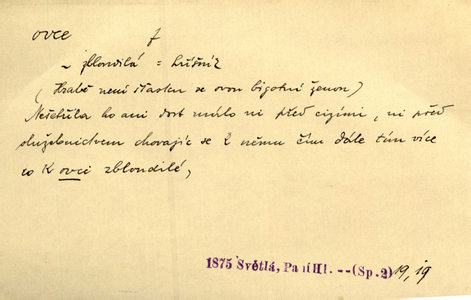 ovce f
~ zbloudilá = hříšník
(Hrabě není šťasten se svou bigotní ženou)
Nešetřila ho ani dost málo ni před cizími, ni před
služebnictvem chovajíc se k němu čím dále tím více
co k ovci zbloudilé,
1875 Světlá, Paní Hl. -- (Sp. 2) 19, 19